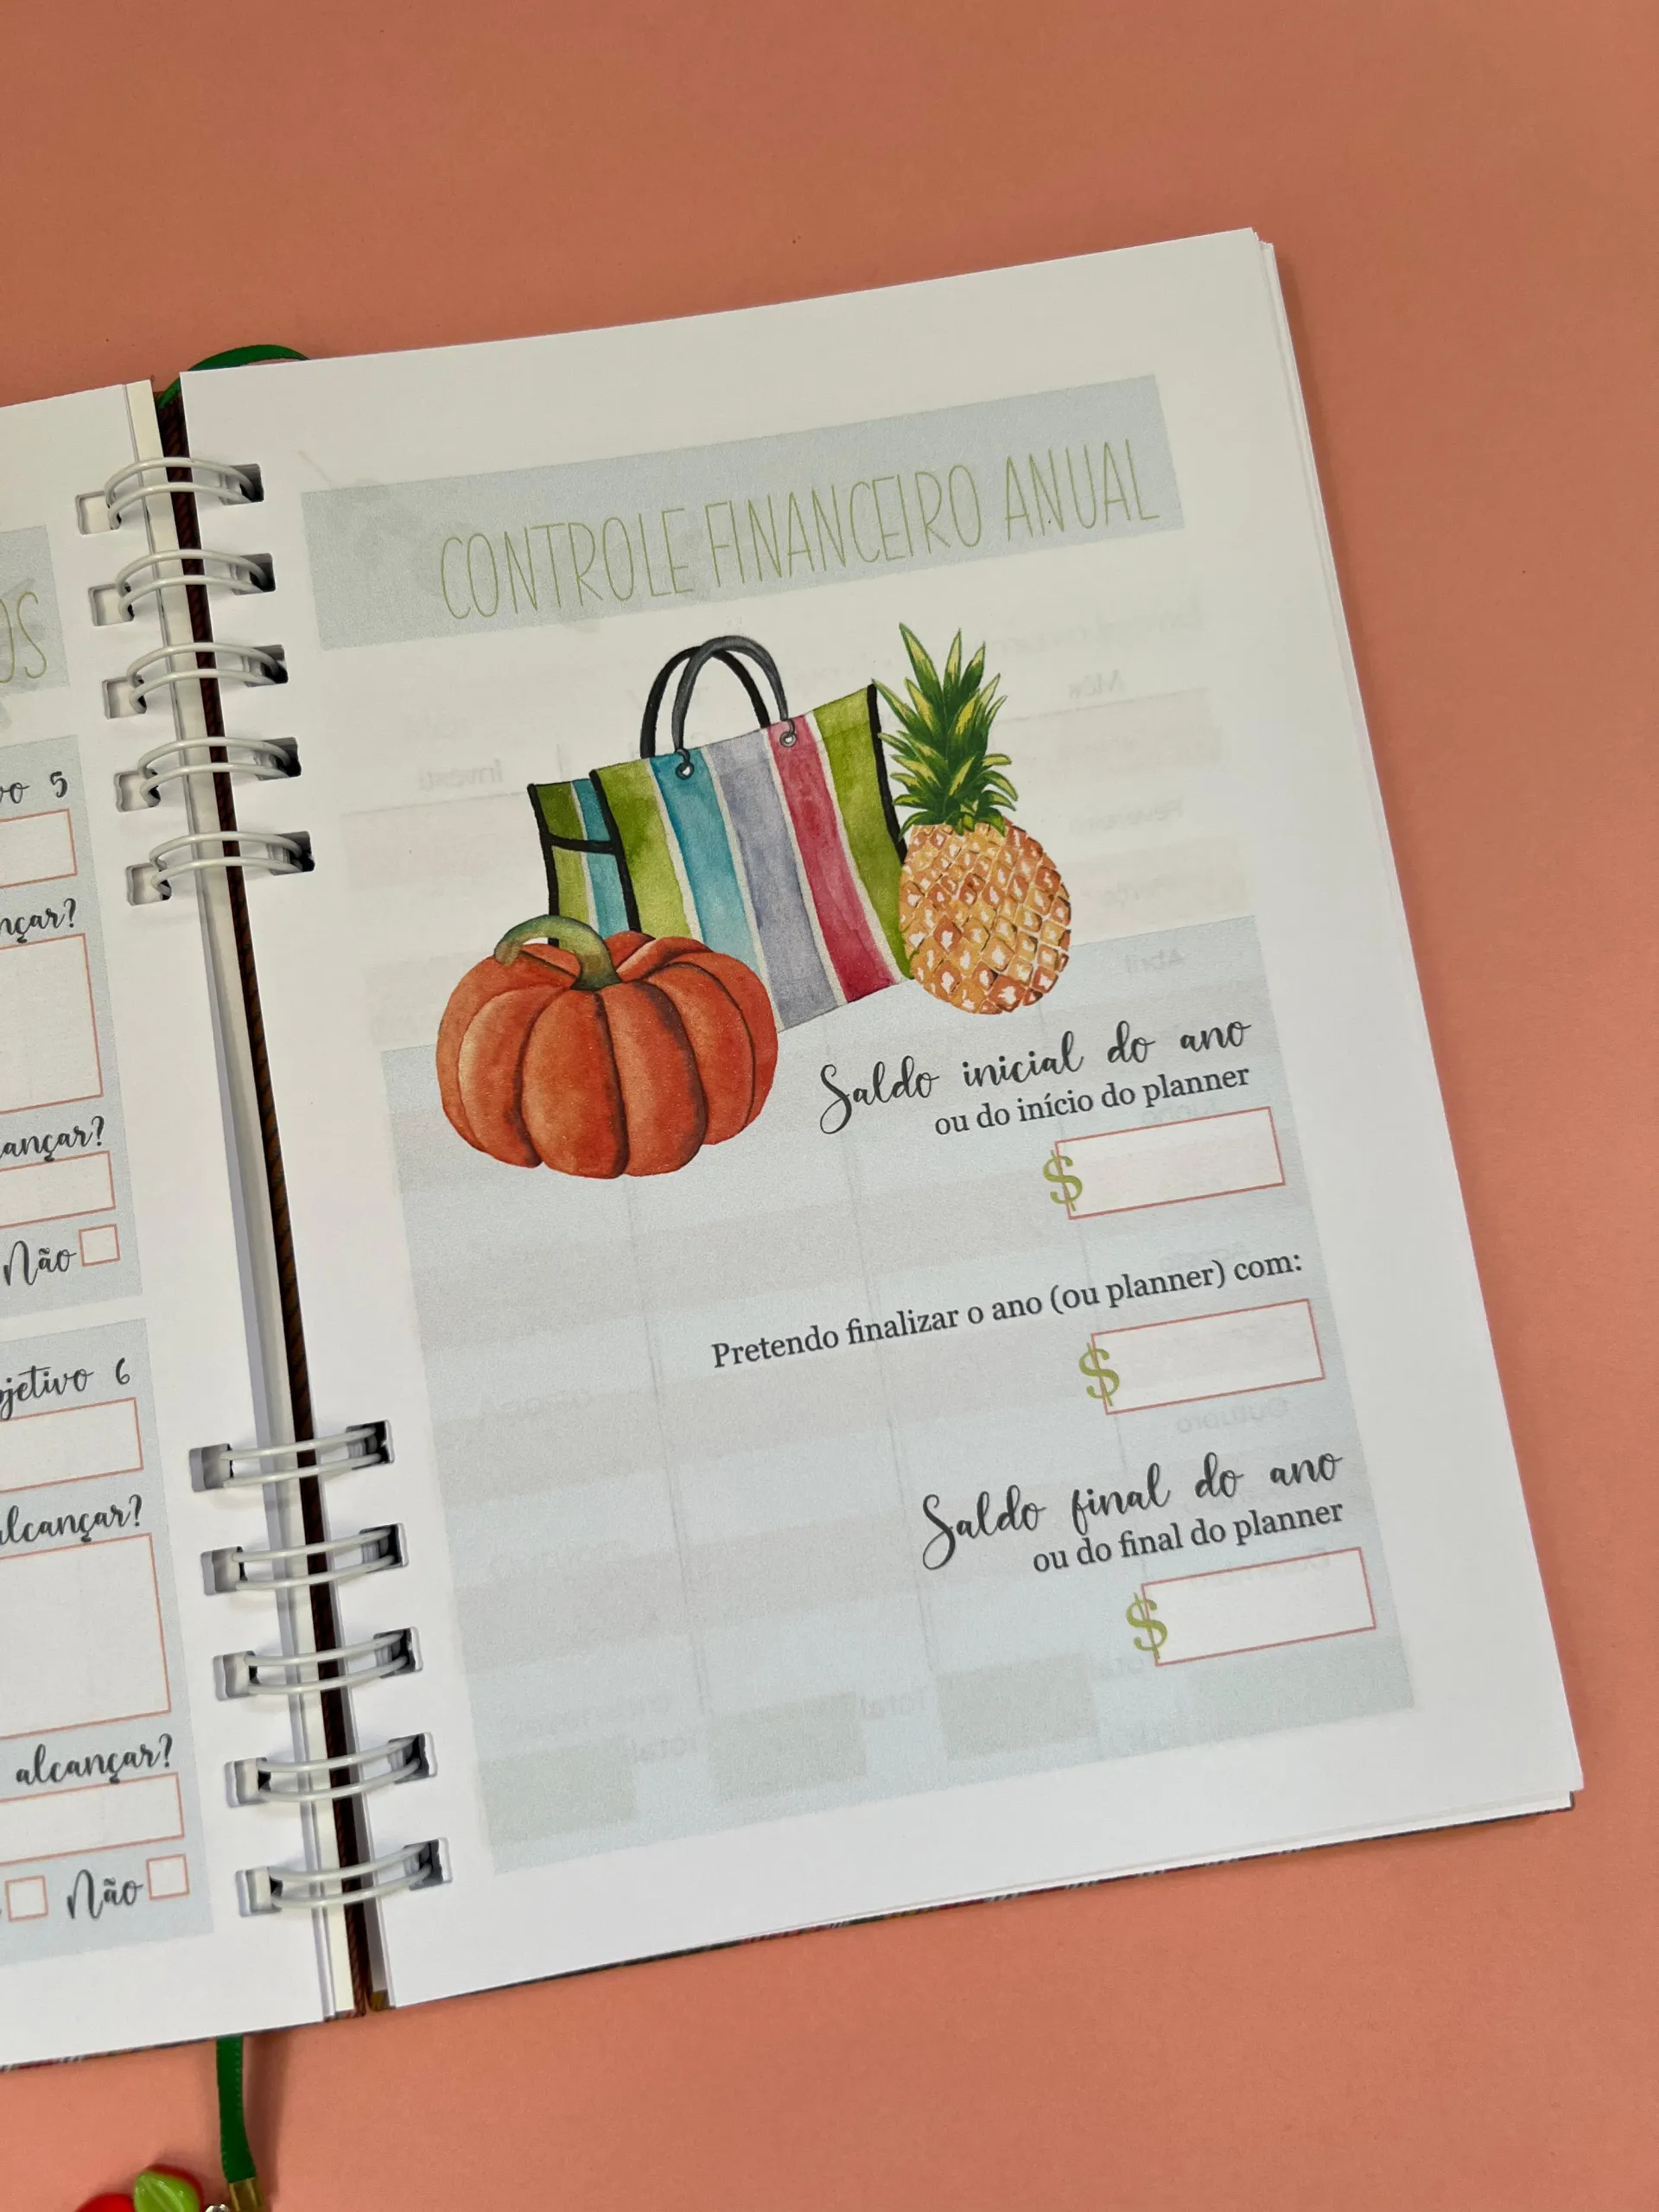 OS
vo 5
nçar?
ançar?
Não
jetivo 6
alcançar?
alcançar?
Não
CONTROLE FINANCEIRO ANUAL
Saldo inicial do ano
ou do início do planner
$
Pretendo finalizar o ano (ou planner) com:
$
Saldo final do ano
ou do final do planner
$